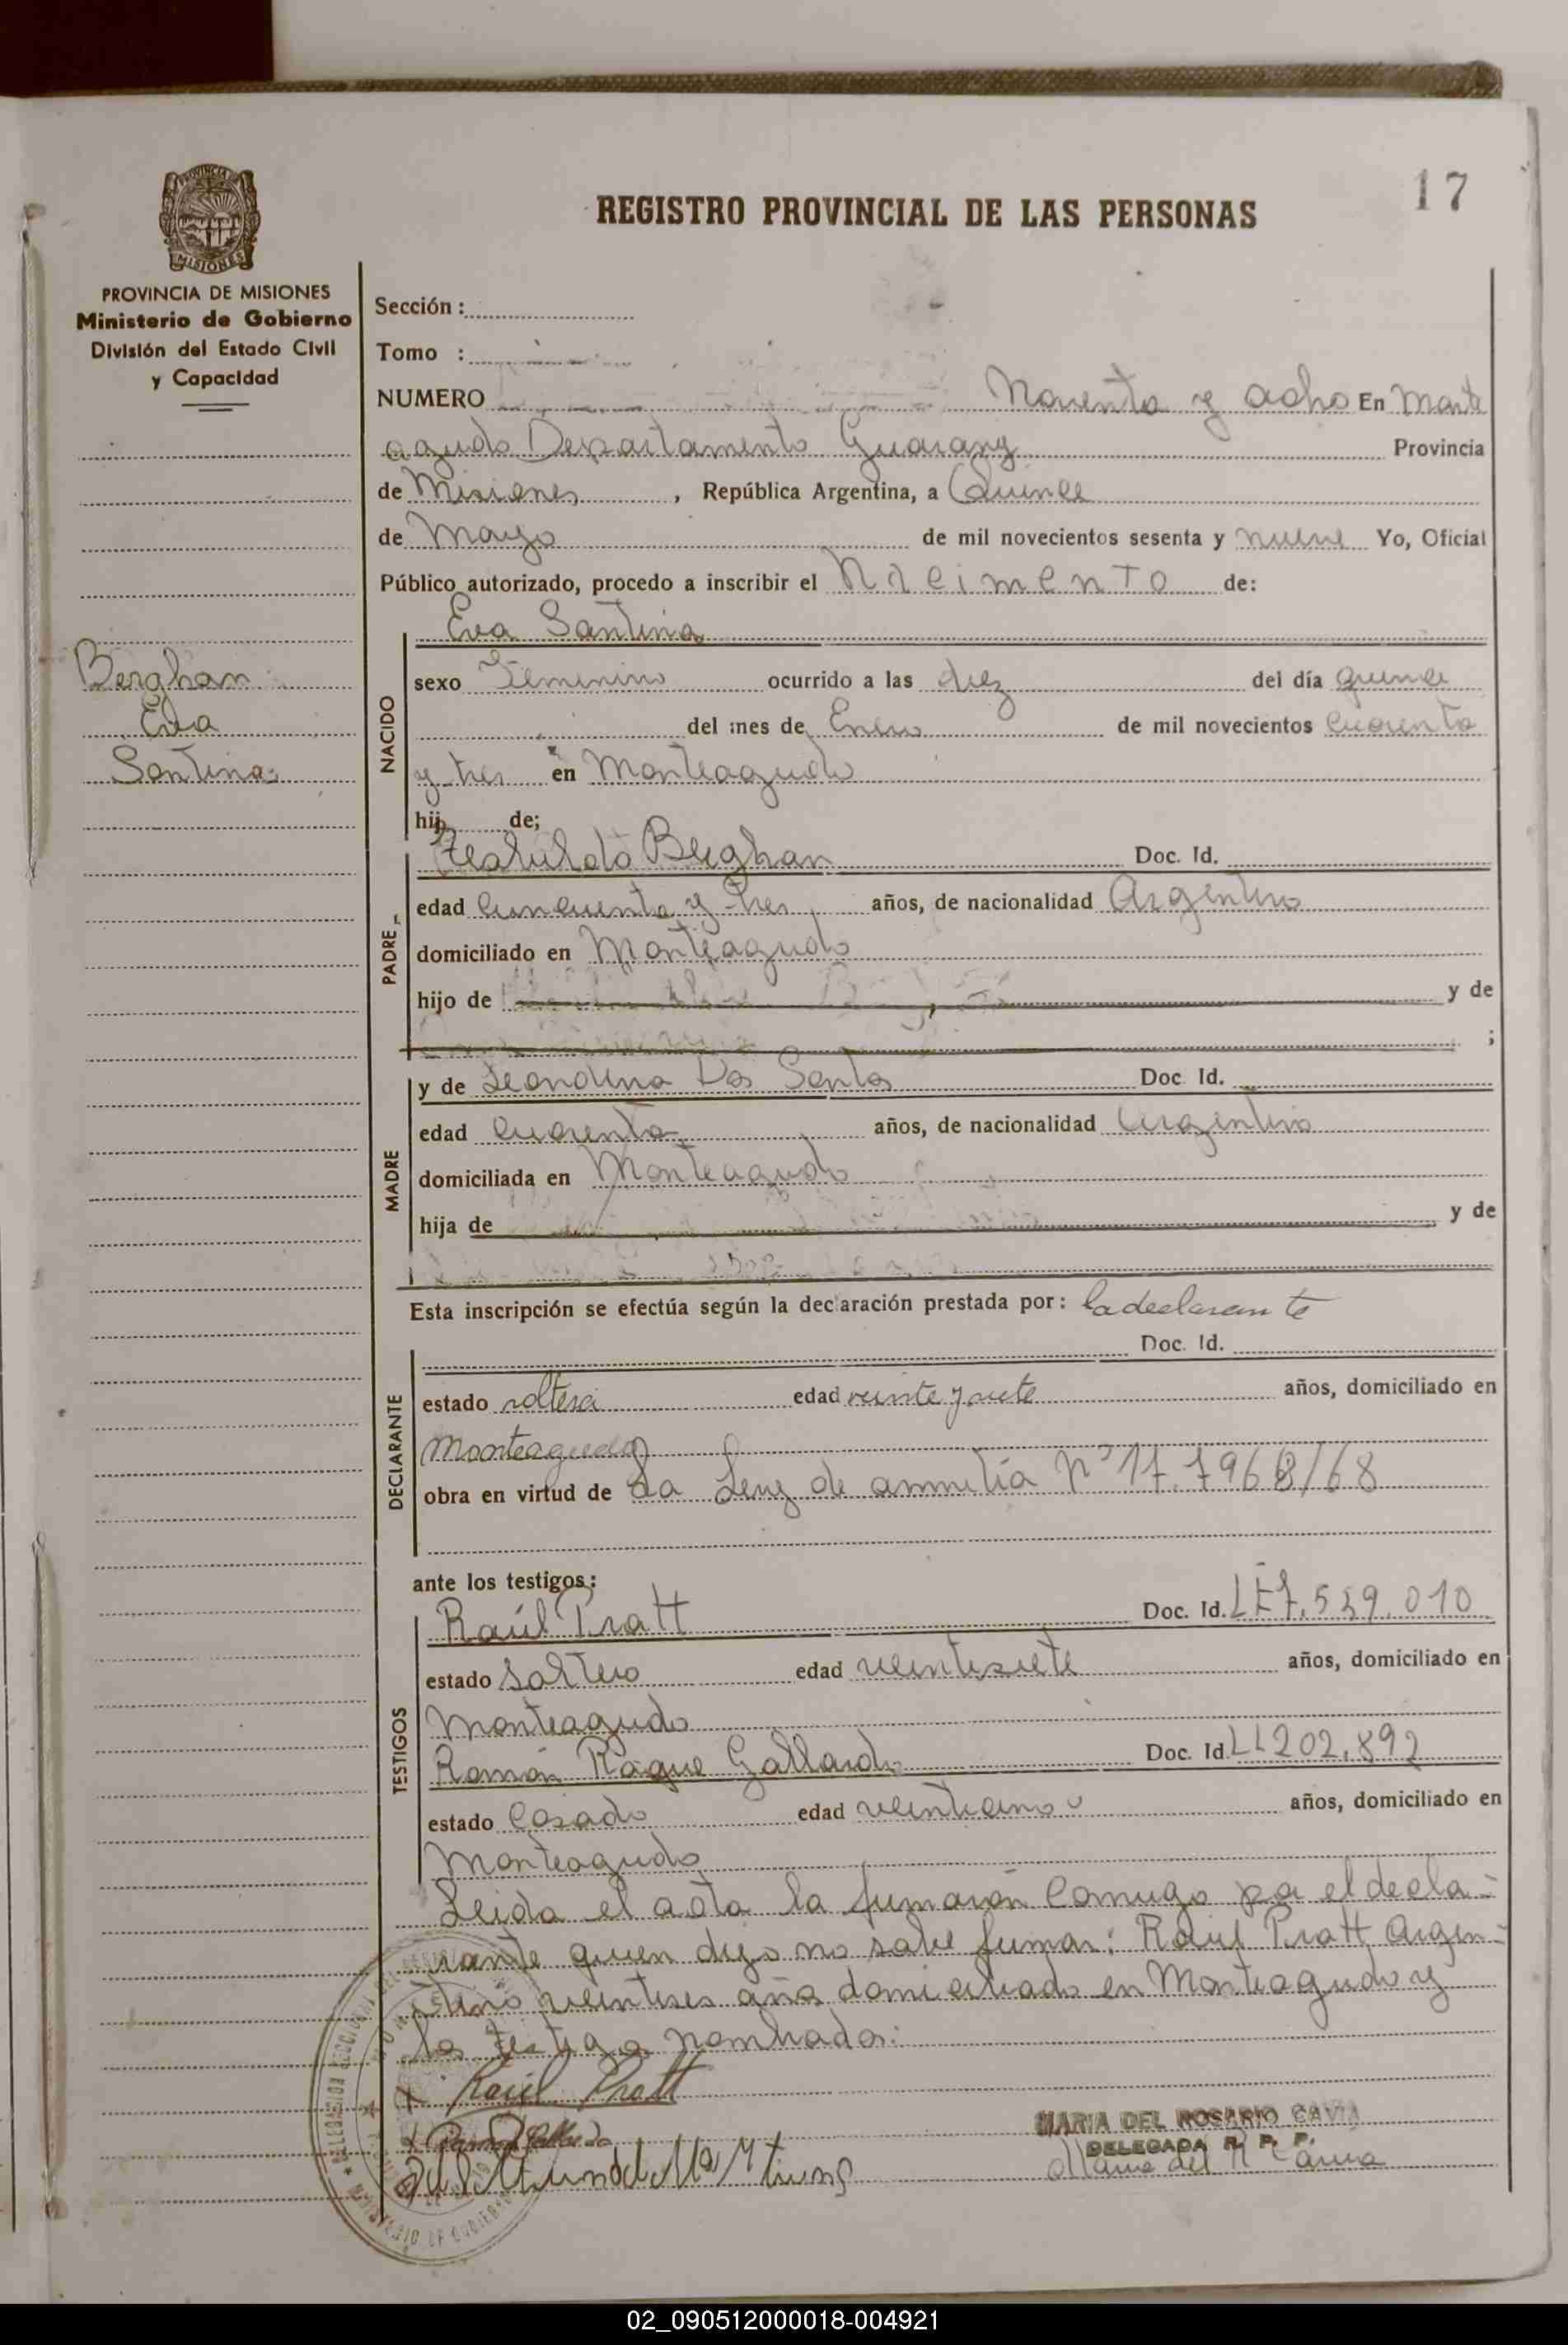 17
REGISTRO PROVINCIAL DE LAS PERSONAS
PROVINCIA DE
MISIONES
PROVINCIA DE MISIONES
Ministerio de Gobierno
División del Estado Civil
y Capacidad
Bergham
Eva
Santina
Sección :
Tomo :
NUMERO Noventa y ocho En Monte
agudo Departamento Guarany Provincia
de Misiones , República Argentina, a Quince
de Mayo de mil novecientos sesenta y nueve Yo, Oficial
Público autorizado, procedo a inscribir el Nacimento de:
NACIDO
Eva Santina
sexo Femenino ocurrido a las diez del día quince
del mes de Enero de mil novecientos cuarenta
y tres en Monteagudo
hij de;
PADRE
Berghan Doc. Id.
edad cincuenta y tres años, de nacionalidad Argentino
domiciliado en Monteagudo
hijo de y de
;
MADRE
y de Leondina Dos Santos Doc. Id.
edad cuarenta años, de nacionalidad Argentina
domiciliada en Monteagudo
hija de y de
Esta inscripción se efectúa según la declaración prestada por: la declarante
DECLARANTE
Doc. Id.
estado soltera edad veinte y siete años, domiciliado en
Monteagudo
obra en virtud de La Ley de amnitia Nº 17.
ante los testigos:
TESTIGOS
Raúl Pratt Doc. Id.
estado Soltero edad veintisiete años, domiciliado en
Monteagudo
Ramón Roque Gallardo Doc. Id. 202.892
estado Casado edad años, domiciliado en
Monteagudo
Leida el acta la firmaron conmigo por el decla-
rante quien dijo no sabe firmar: Raúl Pratt Argen-
tino veintiseis años domiciliado en Monteagudo y
los testigos nombrados:
Raúl Pratt
MARIA DEL ROSARIO CAVIA
DELEGADA R. P. P.
02_090512000018-004921